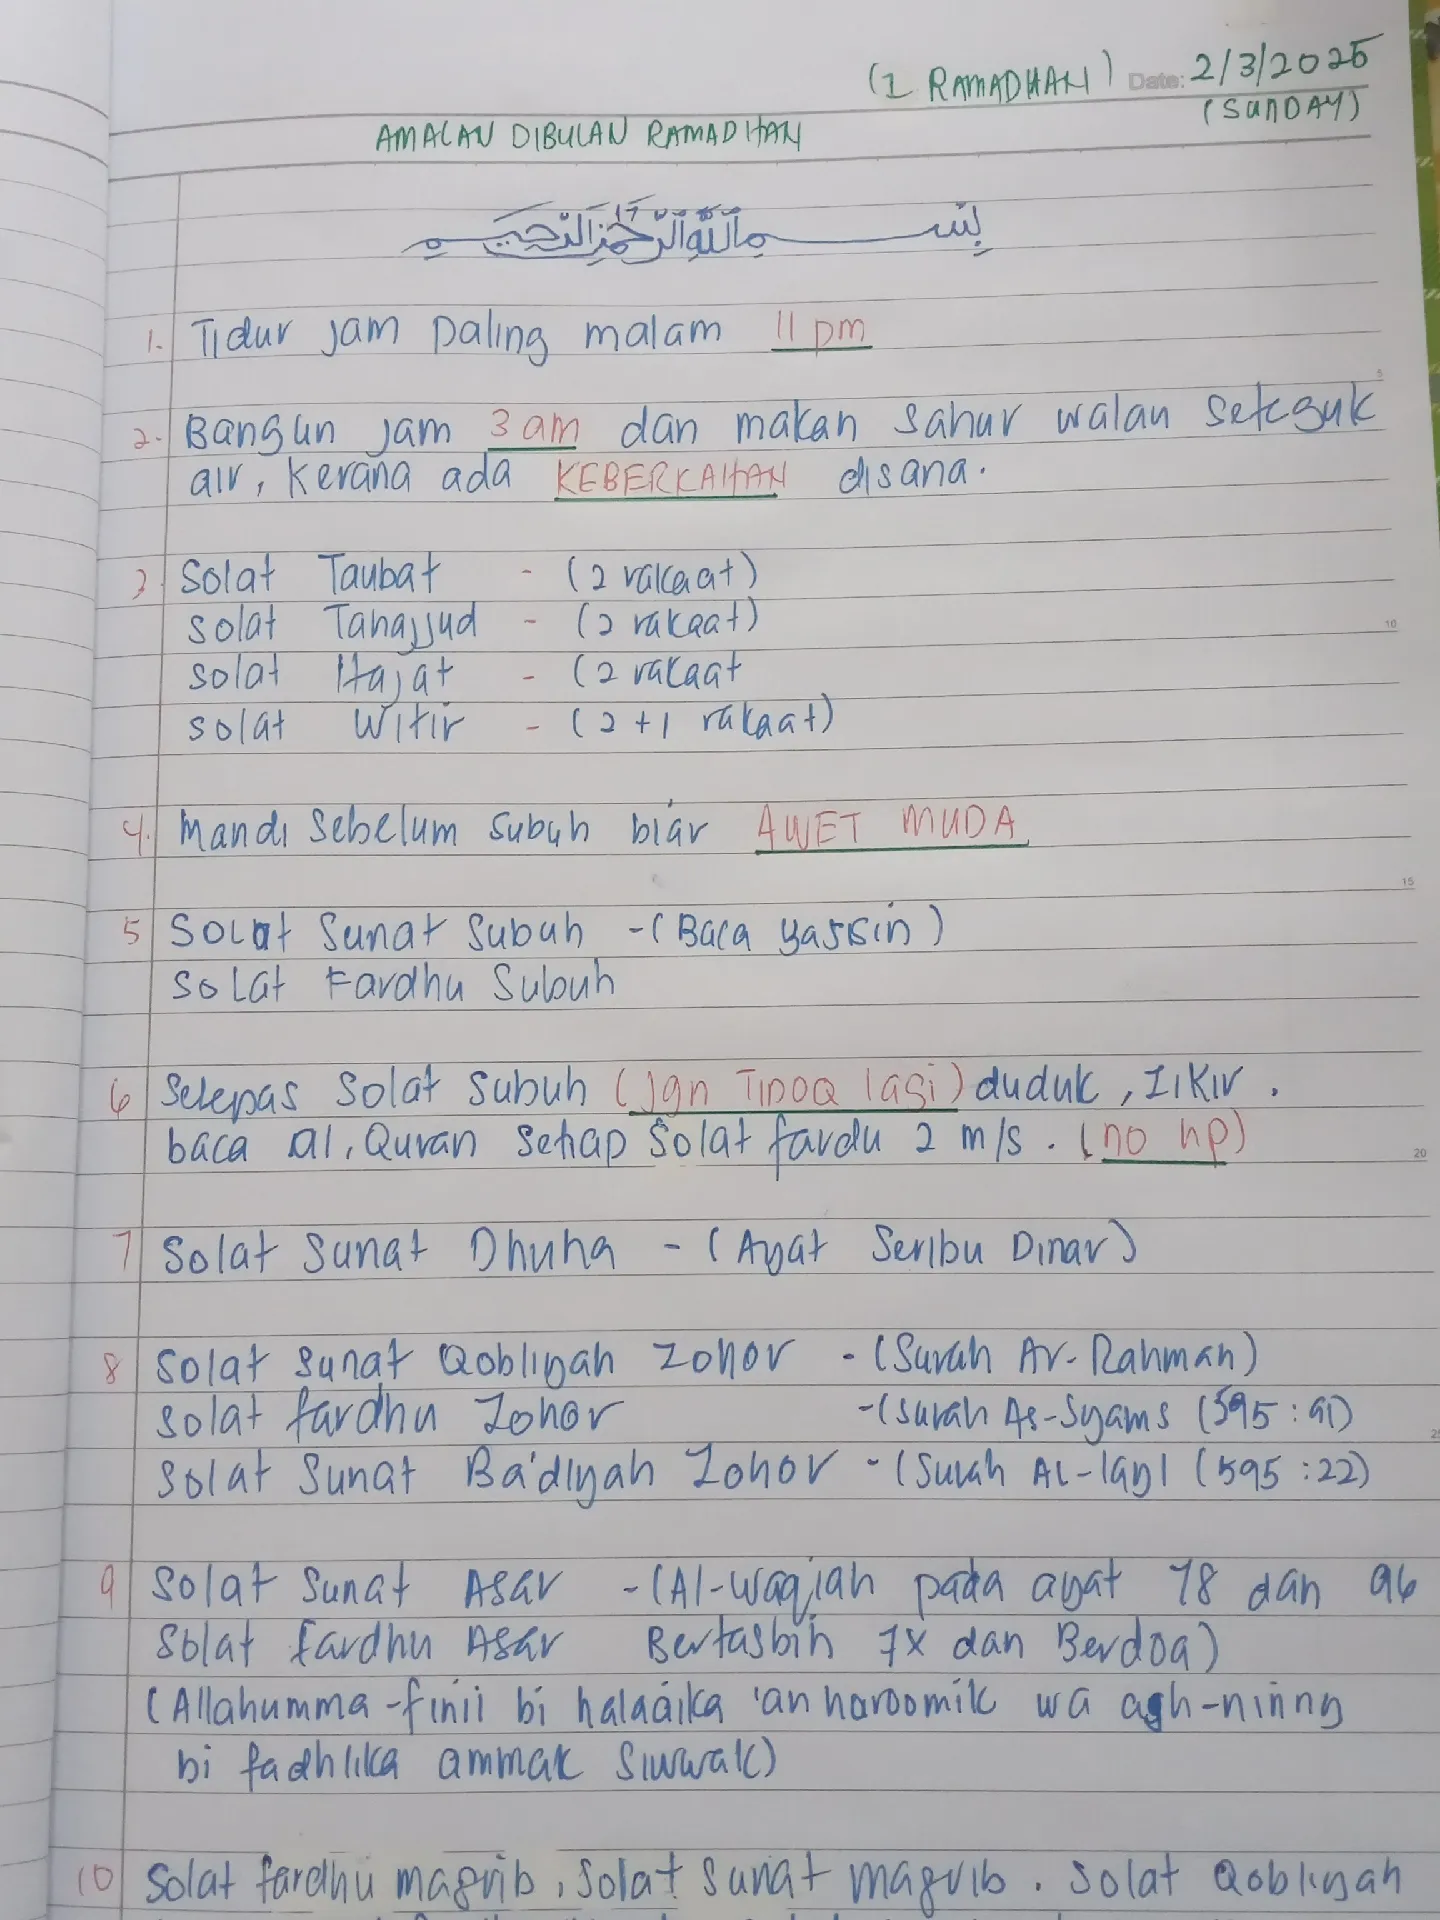 (1 RAMADHAN) Date: 2/3/2025
(SUNDAY)
AMALAN DIBULAN RAMADHAN
بِسْمِ اللَّهِ الرَّحْمَٰنِ الرَّحِيمِ
1. Tidur jam paling malam 11 pm
5
2. Bangun jam 3 am dan makan sahur walau seteguk
air, kerana ada KEBERKAHAN disana.
3. Solat Taubat - (2 rakaat)
Solat Tahajjud - (2 rakaat)
10
Solat Hajat - (2 rakaat
Solat Witir - (2 + 1 rakaat)
4. Mandi sebelum subuh biar AWET MUDA
15
5 Solat Sunat Subuh - (Baca yassin)
Solat Fardhu Subuh
6 Selepas Solat Subuh (Jgn TIDOQ lagi) duduk, Zikir.
baca al, Quran setiap Solat fardu 2 m/s. (no hp)
20
7 Solat Sunat Dhuha - (Ayat Seribu Dinar)
8 Solat Sunat Qobliyah Zohor - (Surah Ar-Rahman)
Solat fardhu Zohor - (Surah As-Syams (595 : 91)
Solat Sunat Ba'diyah Zohor - (Surah Al-layl (595 : 22)
9 Solat Sunat Asar - (Al-waqiah pada ayat 78 dan 96
Solat fardhu Asar Bertasbih 7x dan Berdoa)
(Allahumma-finii bi halaaika 'an haroomik wa agh-niiny
bi fadhlika ammak siwwak)
10 Solat fardhu magrib, Solat sunat magrib. Solat Qobliyah